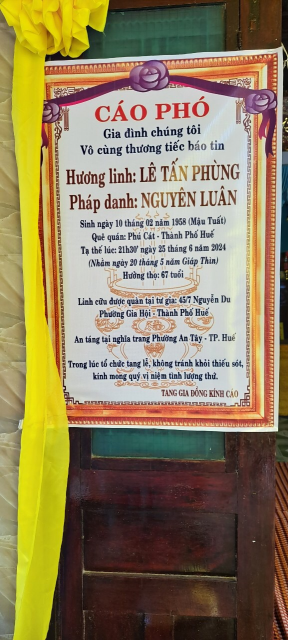 CÁO PHÓ
Gia đình chúng tôi
Vô cùng thương tiếc báo tin
Hương linh: LÊ TẤN PHÙNG
Pháp danh: NGUYÊN LUÂN
Sinh ngày 10 tháng 02 năm 1958 (Mậu Tuất)
Quê quán: Phú Cát - Thành Phố Huế
Tạ thế lúc: 21h30' ngày 25 tháng 6 năm 2024
(Nhằm ngày 20 tháng 5 năm Giáp Thìn)
Hưởng thọ: 67 tuổi
Linh cữu được quàn tại tư gia: 45/7 Nguyễn Du
Phường Gia Hội - Thành Phố Huế
An táng tại nghĩa trang Phường An Tây - TP. Huế
Trong lúc tổ chức tang lễ, không tránh khỏi thiếu sót,
kính mong quý vị niệm tình lượng thứ.
TANG GIA ĐỒNG KÍNH CÁO